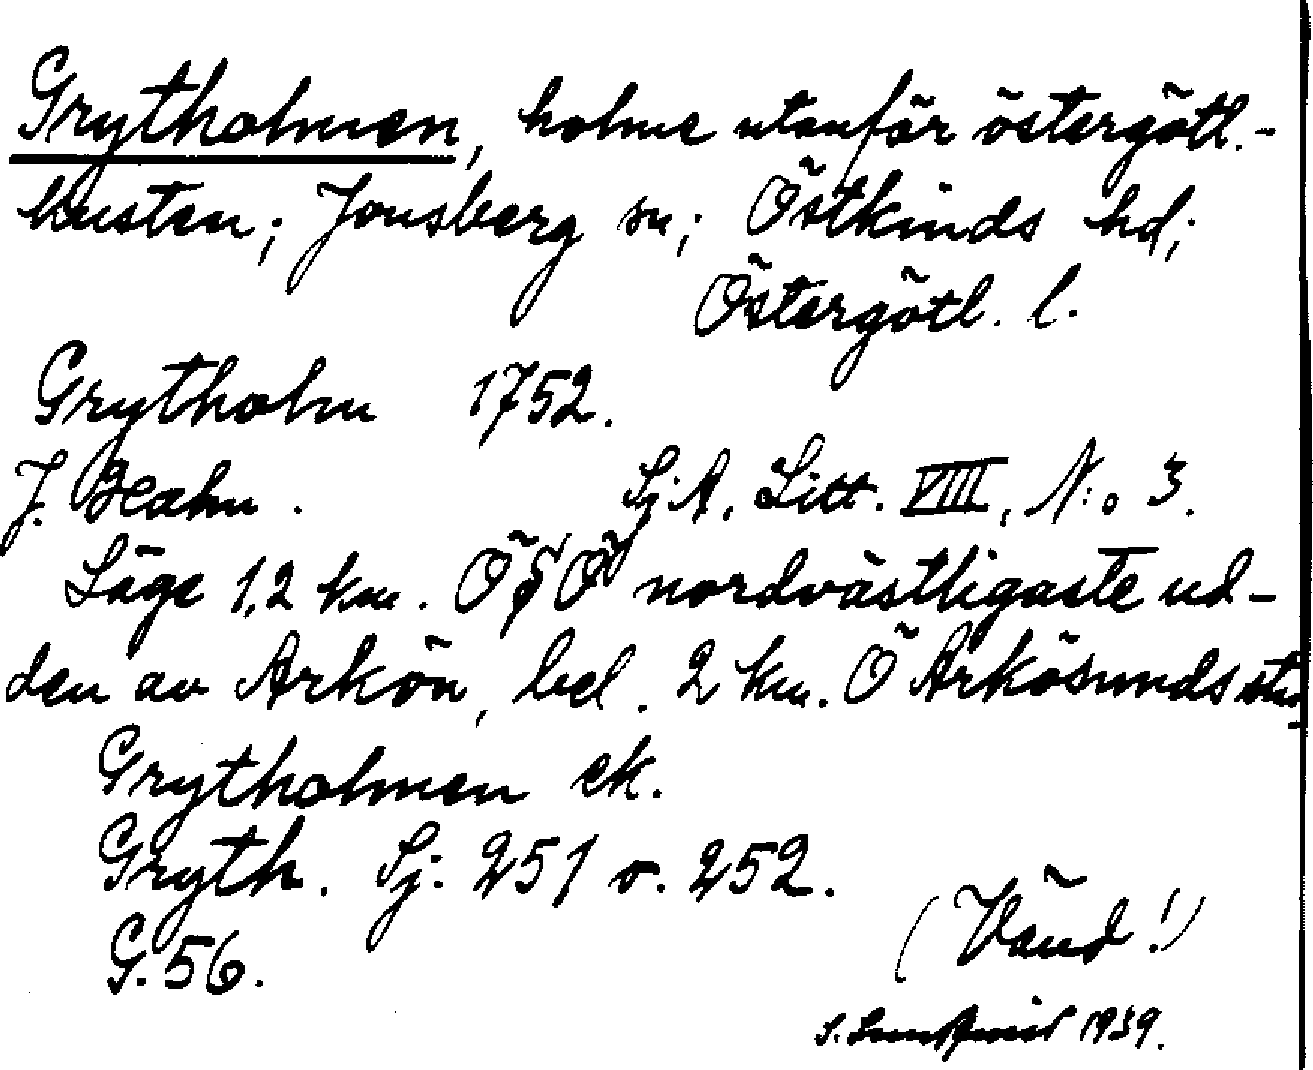 Grytholmen, holme utanför östergötl.-
kusten; Jonsberg sn; Östkinds hd;
Östergötl. l.
Grytholm 1752.
J. Hahn. Sj.A. Litt. VIIII, N:o 3.
Läge 1,2 km. ÖSÖ nordvästligaste ud-
den av Arkön, bel. 2 km. Ö Arkösunds stn
Grytholmen ek.
Gryth. Sj. 251 o. 252.
G. 56.
(Vänd!)
S. 1939.